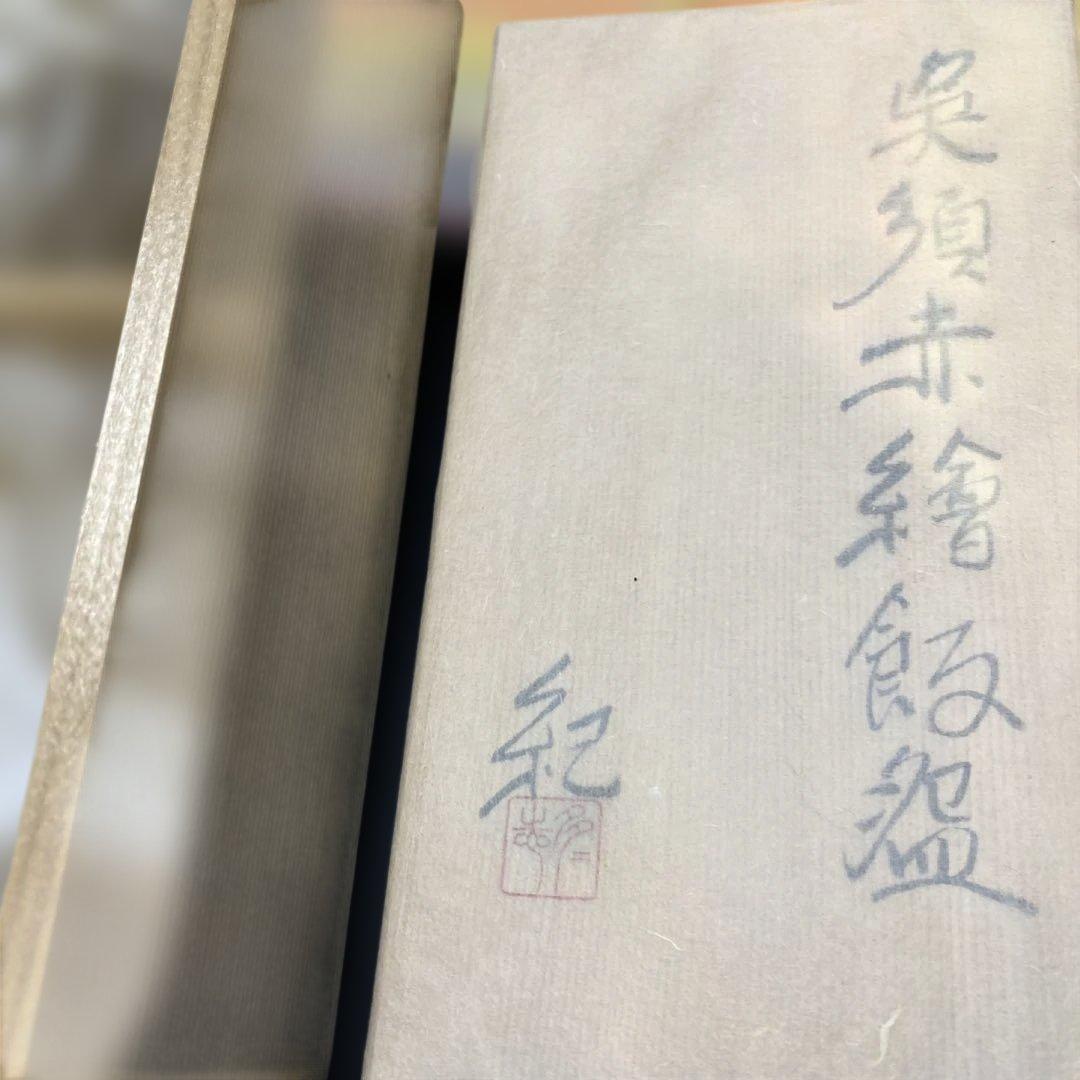 呉須赤繪飯盌
紀